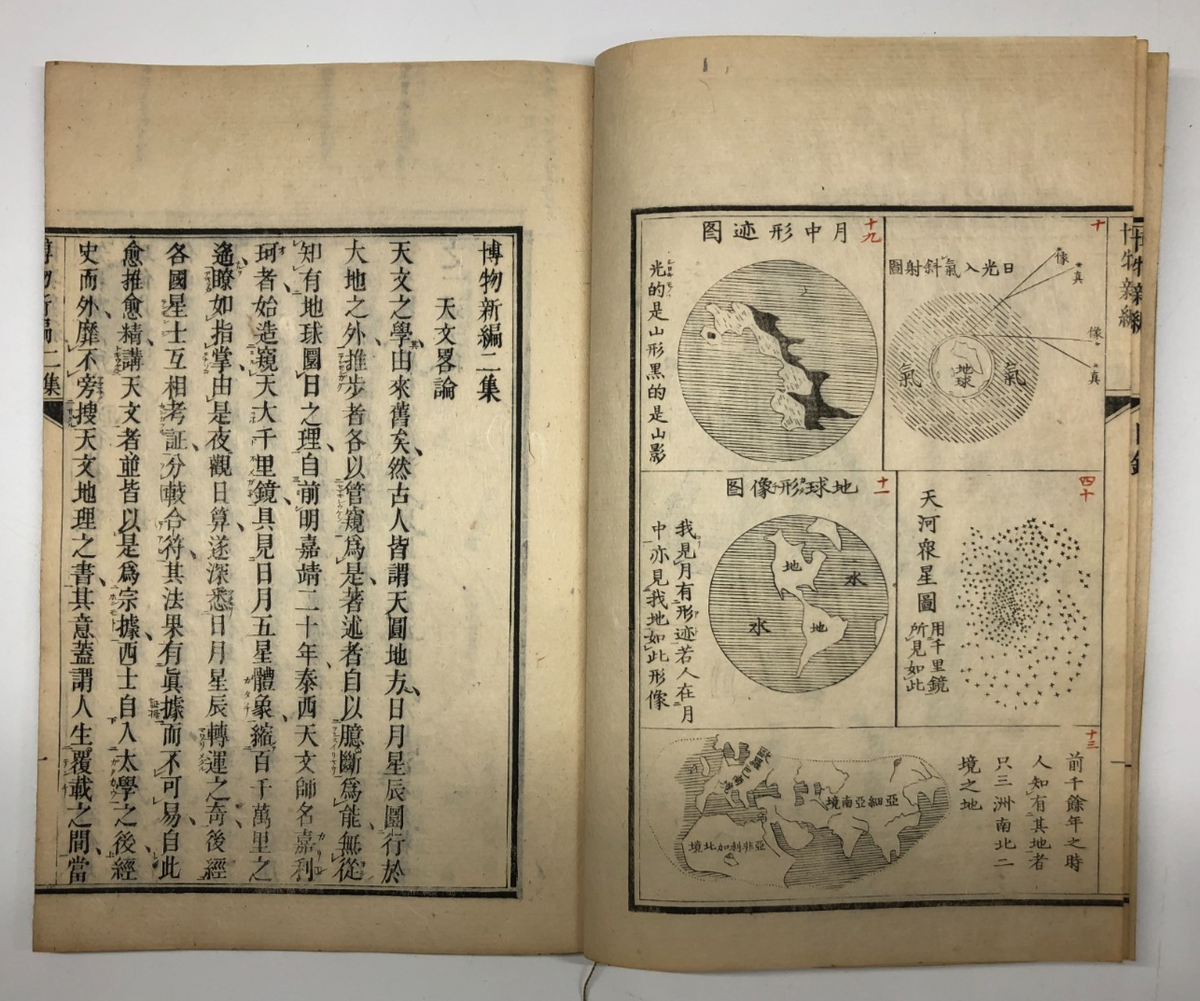 博物新編
目錄
十
日光入氣斜射圖
像
真
像
真
氣
地球
氣
十九
月中形迹图
光的是山形黑的是山影
四十
天河衆星圖
用千里鏡
所見如此
十一
地球形像图
我見月有形迹若人在月
中亦見我地如此形像
地
水
水
地
十三
前千餘年之時
人知有其地者
只三洲南北二
境之地
歐羅巴南境
亞細亞南境
亞非利加北境
博物新編二集
天文畧論
天文之學由來舊矣、然古人皆謂天圓地方、日月星辰圜行於
大地之外、推步者各以管窺爲是、著述者自以臆斷爲能、無從
知有地球圜日之理、自前明嘉靖二十年、泰西天文師名嘉利
珂者、始造窺天大千里鏡、具見日月五星體象、縮百千萬里之
遙、瞭如指掌、由是夜觀日算、遂深悉日月星辰轉運之奇、後經
各國星士互相考証、分較合符、其法果有眞據而不可易、自此
愈推愈精、講天文者、並皆以是爲宗據、西士自入太學之後、經
史而外、靡不旁搜天文地理之書、其意蓋謂人生覆載之間、當
博物新編二集
一